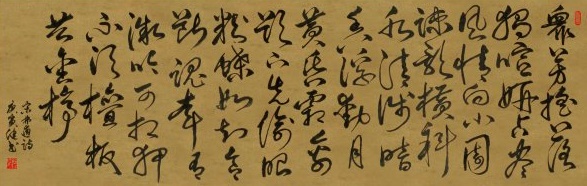 衆芳摇落
獨暄妍占尽
風情向小園
疎影横斜
水清浅暗
香浮動月
黄昏霜禽
欲下先偷眼
粉蝶如知合
断魂幸有
微吟可相狎
不须檀板
共金樽
宋林逋詩
庚寅